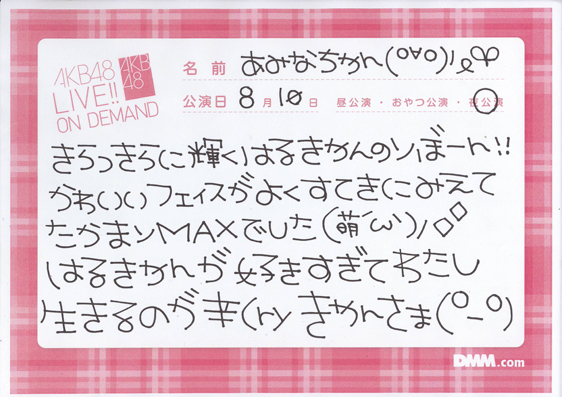 AKB48
LIVE!!
ON DEMAND
AKB
48
名前 あみなちゃん(o∀o)ノ
公演日 8月10日 昼公演・おやつ公演・夜公演
きらっきらに輝くはるきゃんのソばーん!!
かわいいフェイスがよくすてきにみえて
たかまりMAXでした(萌'ω')ノ◇◇
はるきゃんが好きすぎてわたし
生きるのが辛(ry きゃんさま(o_o)
DMM.com